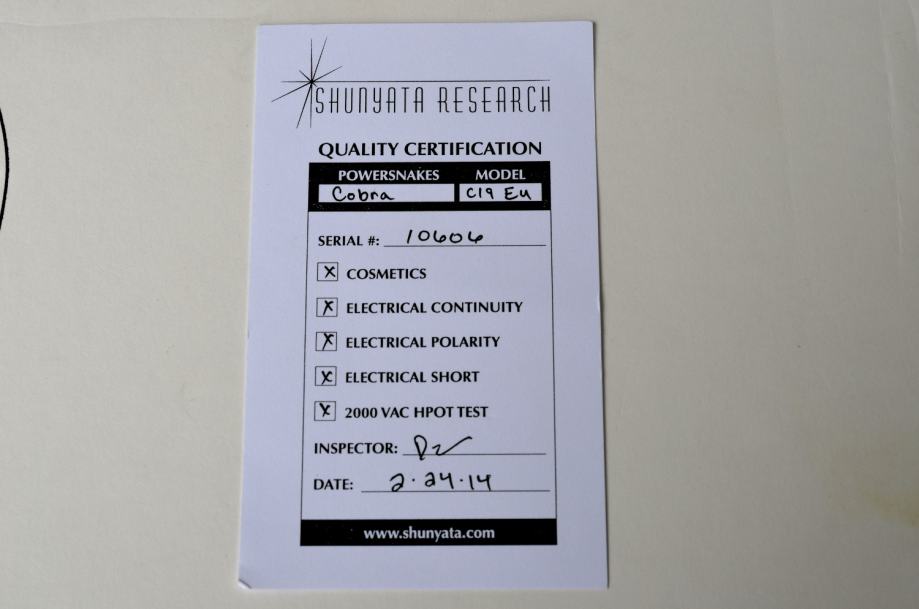 SHUNYATA RESEARCH
QUALITY CERTIFICATION
POWERSNAKES MODEL
Cobra C19 EU
SERIAL #: 10606
X COSMETICS
X ELECTRICAL CONTINUITY
X ELECTRICAL POLARITY
X ELECTRICAL SHORT
X 2000 VAC HPOT TEST
INSPECTOR:
DATE: 2.24.14
www.shunyata.com